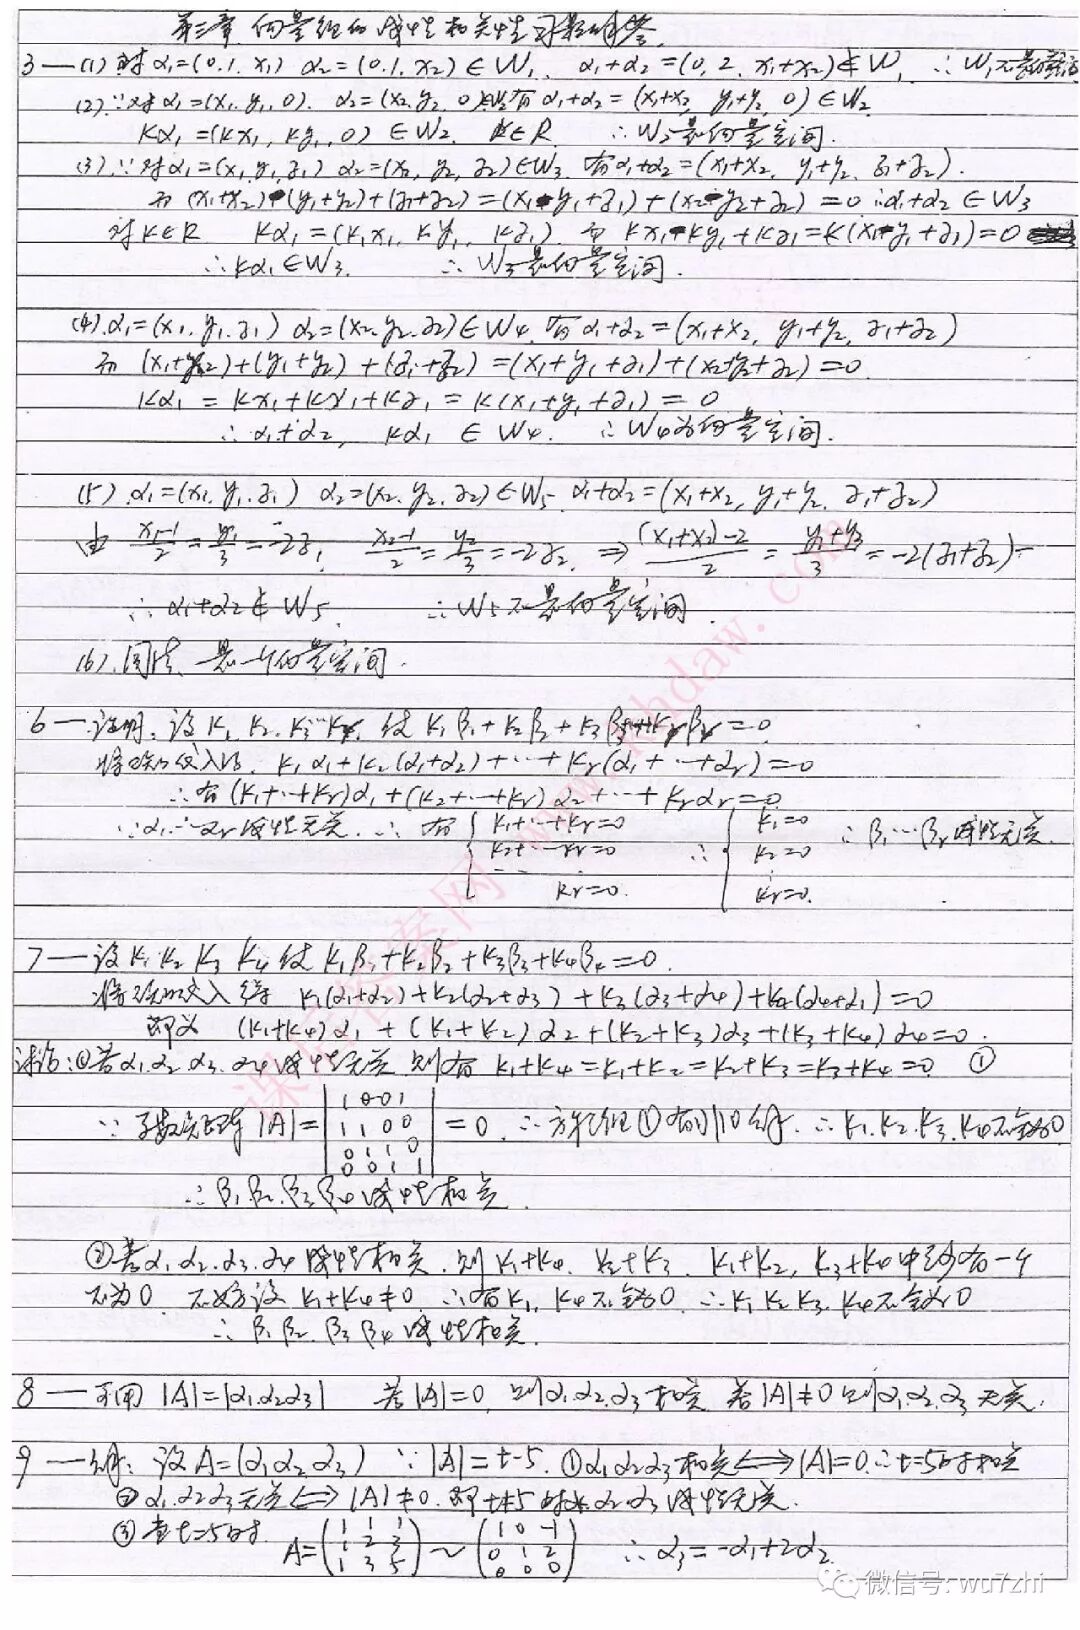 第三章 向量组的线性相关性 习题解答
3—(1) 对 α₁=(0.1. x₁) α₂=(0.1. x₂)∈W₁. α₁+α₂=(0, 2, x₁+x₂)∉W₁ ∴ W₁不是向量空间
(2).∵对α₁=(x₁. y₁, 0). α₂=(x₂. y₂, 0) 有 α₁+α₂=(x₁+x₂, y₁+y₂, 0)∈W₂
kα₁=(kx₁, ky₁, 0)∈W₂. k∈R ∴W₂是向量空间.
(3).∵对α₁=(x₁, y₁, z₁) α₂=(x₂, y₂, z₂)∈W₃. 有α₁+α₂=(x₁+x₂, y₁+y₂, z₁+z₂).
而 (x₁+x₂)-(y₁+y₂)+(z₁+z₂)=(x₁-y₁+z₁)+(x₂-y₂+z₂)=0 ∴α₁+α₂∈W₃
对k∈R kα₁=(kx₁, ky₁, kz₁). 而 kx₁-ky₁+kz₁=k(x₁-y₁+z₁)=0
∴kα₁∈W₃. ∴ W₃是向量空间.
(4).α₁=(x₁. y₁. z₁) α₂=(x₂. y₂. z₂)∈W₄. 有 α₁+α₂=(x₁+x₂, y₁+y₂, z₁+z₂)
而 (x₁+x₂)+(y₁+y₂)+(z₁+z₂)=(x₁+y₁+z₁)+(x₂+y₂+z₂)=0.
kα₁=kx₁+ky₁+kz₁=k(x₁+y₁+z₁)=0
∴ α₁+α₂, kα₁∈W₄. ∴ W₄为向量空间.
(5).α₁=(x₁. y₁. z₁) α₂=(x₂. y₂. z₂)∈W₅. α₁+α₂=(x₁+x₂, y₁+y₂, z₁+z₂)
由 (x₁-1)/2=y₁/3=-2z₁, (x₂-1)/2=y₂/3=-2z₂. ⇒ ((x₁+x₂)-2)/2=(y₁+y₂)/3=-2(z₁+z₂)
∴ α₁+α₂∉W₅. ∴W₅不是向量空间.
(6).同法. 是一个向量空间.
6—证明: 设 k₁ k₂. k₃…kᵣ. 使 k₁β₁+k₂β₂+k₃β₃+…+kᵣβᵣ=0
将 代入得. k₁α₁+k₂(α₁+α₂)+…+kᵣ(α₁+…+αᵣ)=0
∴有 (k₁+…+kᵣ)α₁+(k₂+…+kᵣ)α₂+…+kᵣαᵣ=0
∵α₁…αᵣ线性无关. ∴ 有 { k₁+…+kᵣ=0 ∴ { k₁=0 ∴β₁…βᵣ线性无关.
k₂+…kᵣ=0 k₂=0
kᵣ=0. kᵣ=0.
7—设 k₁ k₂ k₃ k₄ 使 k₁β₁+k₂β₂+k₃β₃+k₄β₄=0.
将 代入得 k₁(α₁+α₂)+k₂(α₂+α₃)+k₃(α₃+α₄)+k₄(α₄+α₁)=0
即为 (k₁+k₄)α₁+(k₁+k₂)α₂+(k₂+k₃)α₃+(k₃+k₄)α₄=0.
讨论:①若α₁.α₂.α₃.α₄线性无关 则有 k₁+k₄=k₁+k₂=k₂+k₃=k₃+k₄=0 ①
∵ 系数矩阵 |A|=
|1 0 0 1|
|1 1 0 0|
|0 1 1 0|
|0 0 1 1|
=0. ∴方程组①有非0解. ∴k₁.k₂.k₃.k₄不全为0
∴β₁β₂.β₃β₄线性相关.
②若α₁α₂.α₃.α₄线性相关. 则 k₁+k₄. k₂+k₃. k₁+k₂, k₃+k₄中至少有一个
不为0. 不妨设 k₁+k₄≠0. ∴有k₁, k₄不全为0. ∴k₁k₂k₃.k₄不全为0
∴ β₁β₂.β₃β₄线性相关.
8—可用 |A|=|α₁α₂α₃| 若|A|=0 则α₁α₂.α₃相关 若|A|≠0 则α₁.α₂.α₃无关.
9—解: 设A=(α₁α₂α₃) ∵|A|=t-5. ①α₁α₂α₃相关⟺|A|=0.∴t=5时相关
②α₁.α₂α₃无关⟺|A|≠0. 即t≠5时α₁α₂α₃线性无关.
③ 当t=5时. A=
(1 1 1)
(1 2 3)
(1 3 5)
~
(1 0 -1)
(0 1 2)
(0 0 0)
∴ α₃=-α₁+2α₂.
课后答案网 www.khdaw.com
微信号: wu7zhi